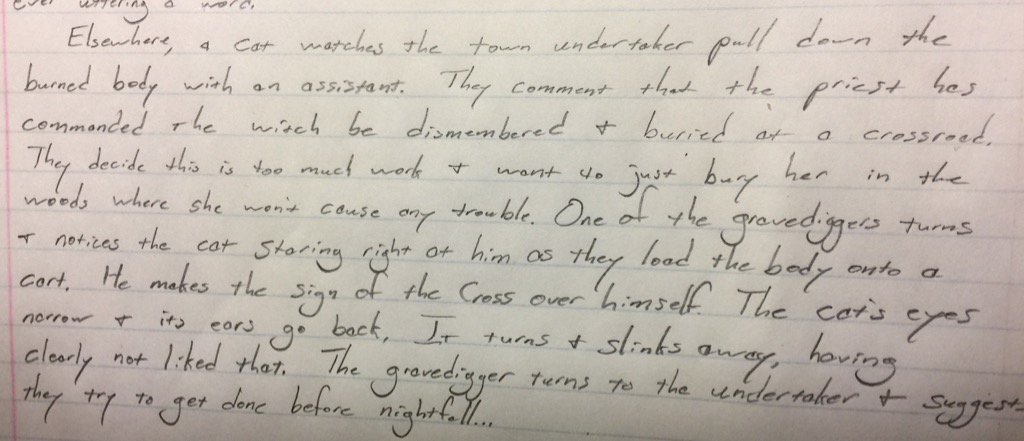 ever uttering a word.
Elsewhere, a cat watches the town undertaker pull down the
burned body with an assistant. They comment that the priest has
commanded the witch be dismembered + buried at a crossroad.
They decide this is too much work + want to just bury her in the
woods where she won't cause any trouble. One of the gravediggers turns
+ notices the cat staring right at him as they load the body onto a
cart. He makes the sign of the Cross over himself. The cat's eyes
narrow + its ears go back. It turns + slinks away, having
clearly not liked that. The gravedigger turns to the undertaker + suggests
they try to get done before nightfall...